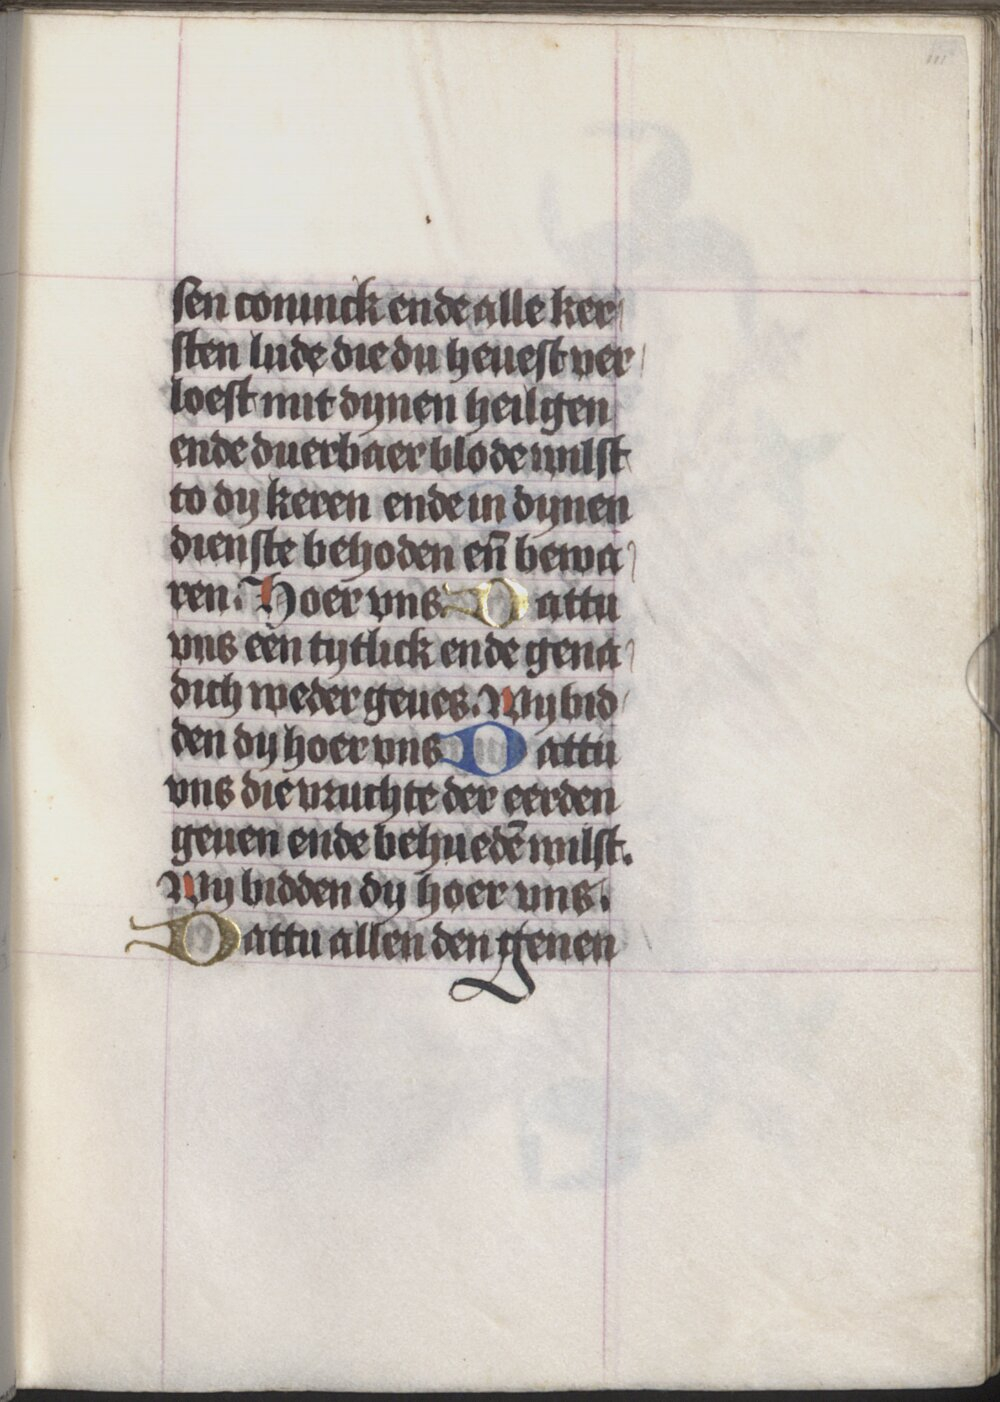 sen coninck ende alle ker
sten lude die du heuest ver
loest mit dynen heilgen
ende duerbaer blode wilst
to dy keren ende in dynen
dienste behoden en̄ bewa
ren. Hoer vns. Dattu
vns een tytlick ende gena
dich weder geues. Wy bid
den dy hoer vns Dattu
vns die vruchte der eerden
geuen ende behuedē wilst.
Wy bidden dy hoer vns.
Dattu allen den genen